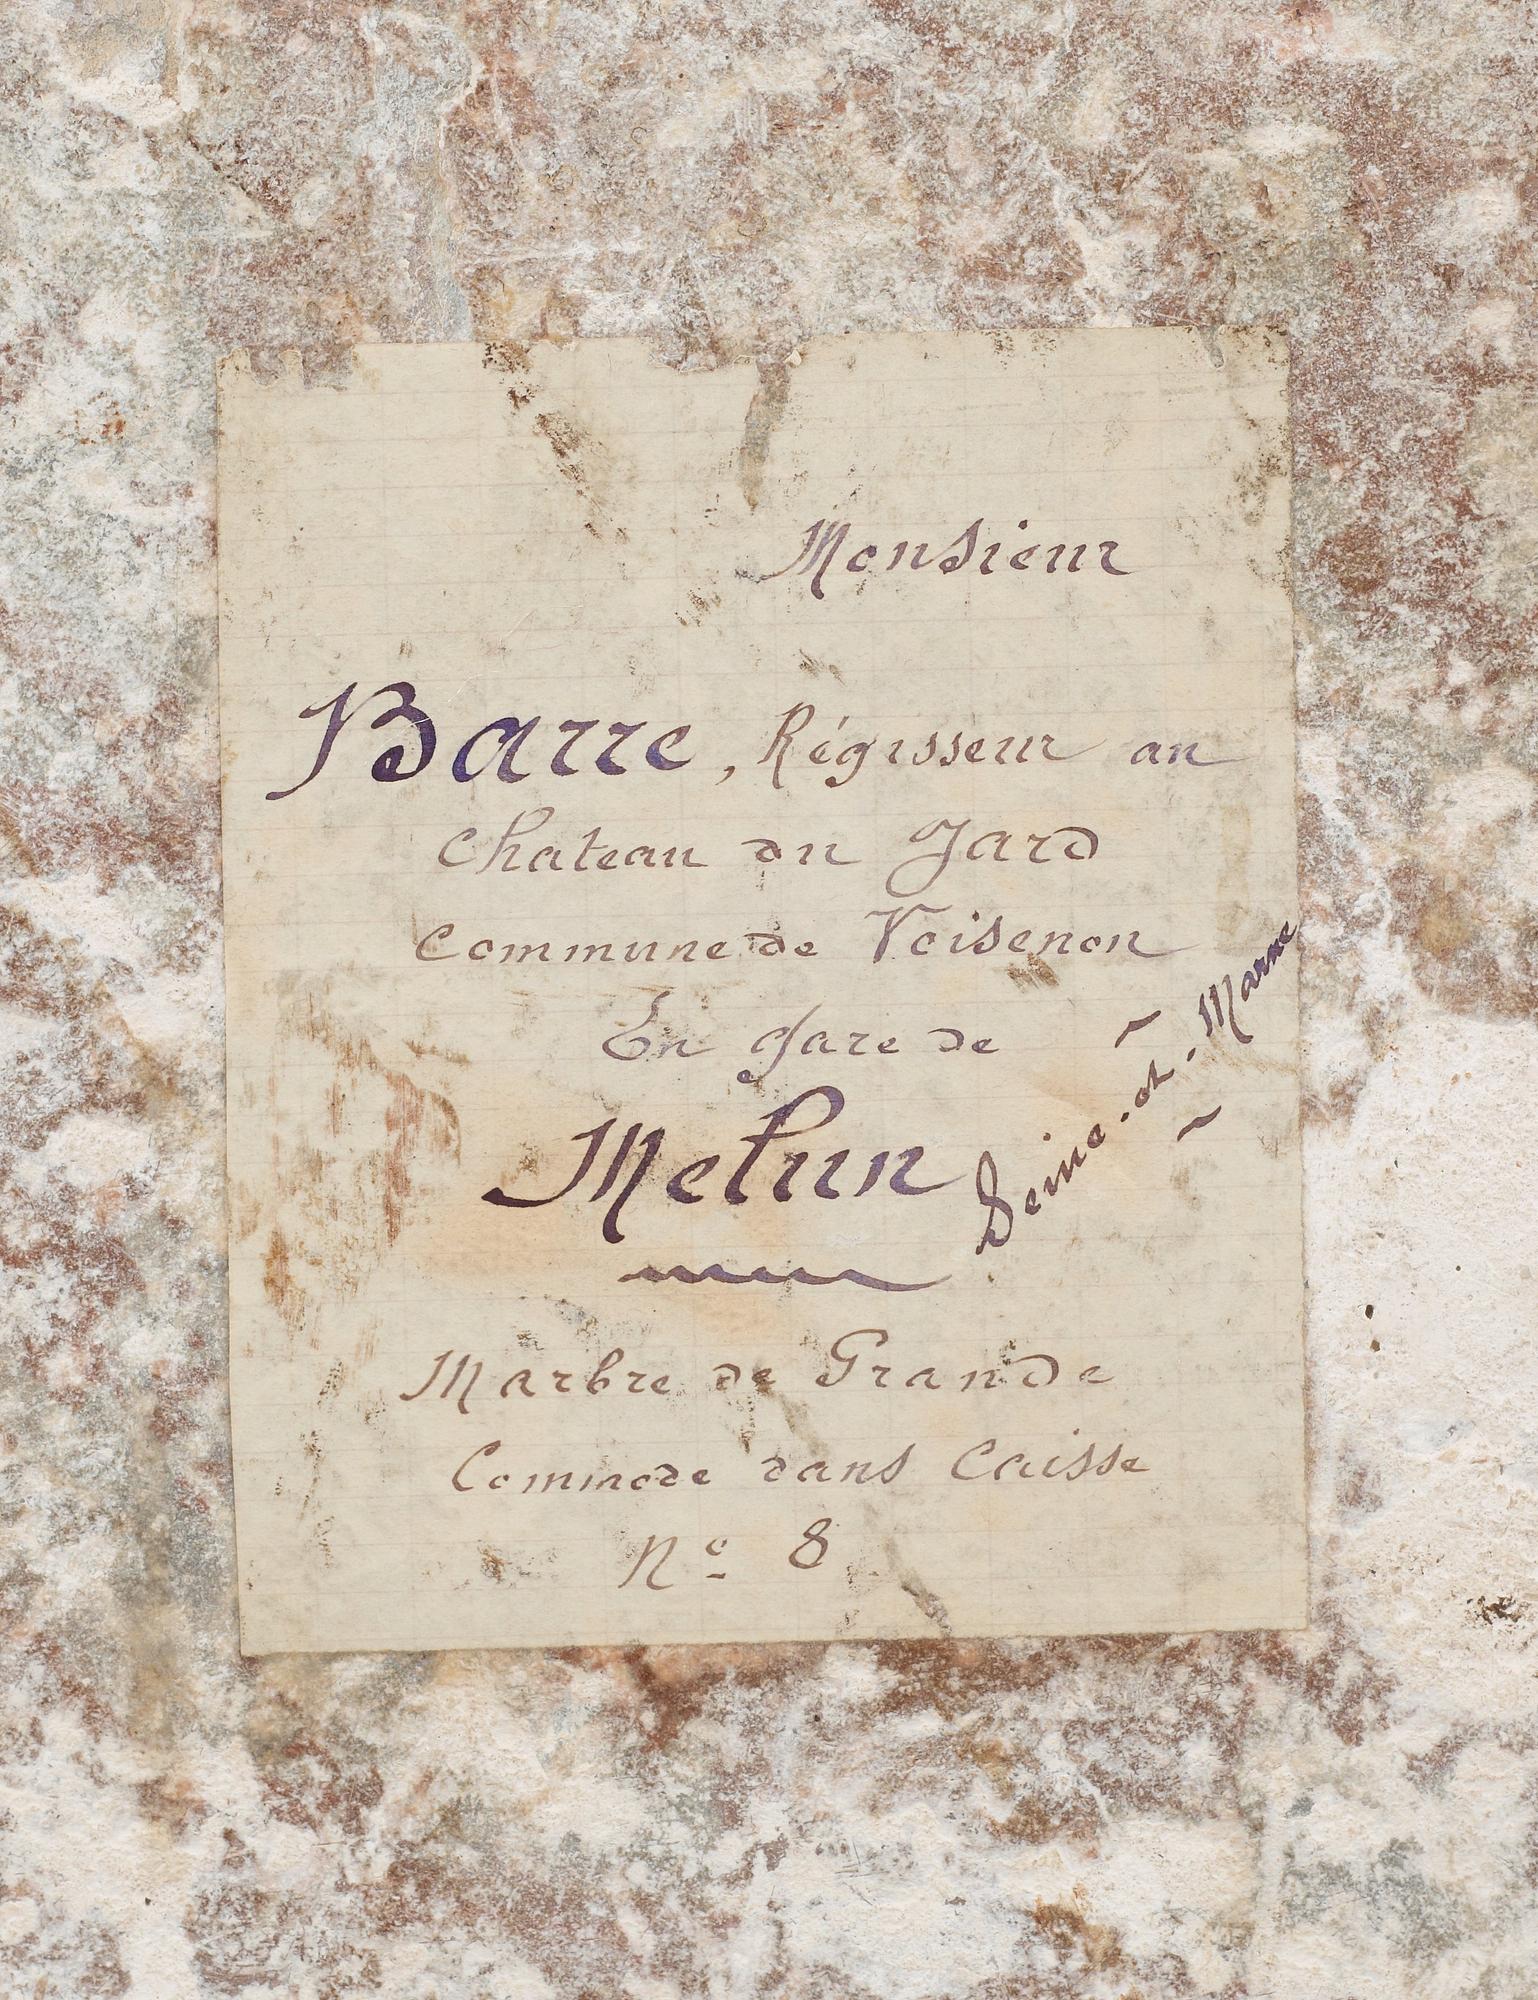 Monsieur
Barre, Régisseur au
Chateau du Jard
Commune de Voisenon
En gare de
Melun
Seine-et-Marne
Marbre de Grande
Commode dans Caisse
No 8